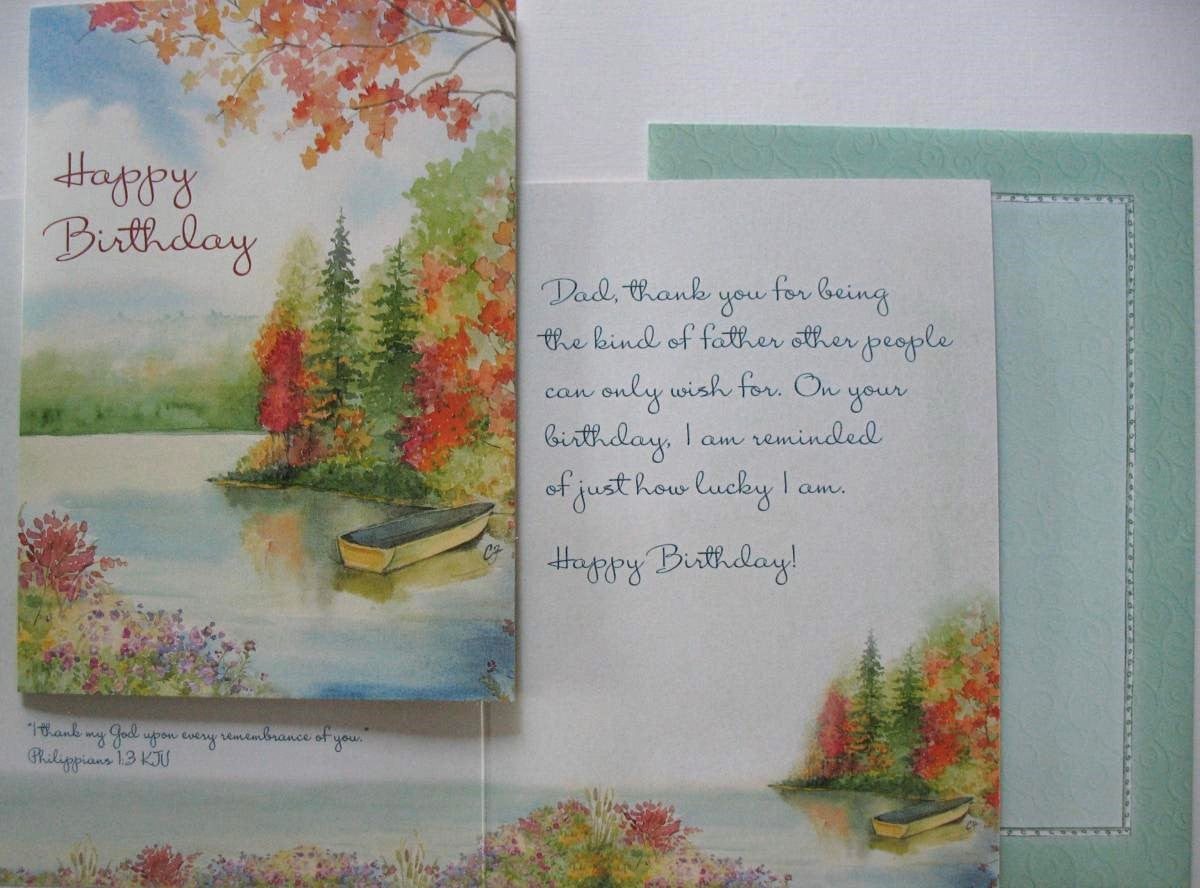 Happy
Birthday
CJ
"I thank my God upon every remembrance of you."
Philippians 1:3 KJV
Dad, thank you for being
the kind of father other people
can only wish for. On your
birthday, I am reminded
of just how lucky I am.
Happy Birthday!
CJ